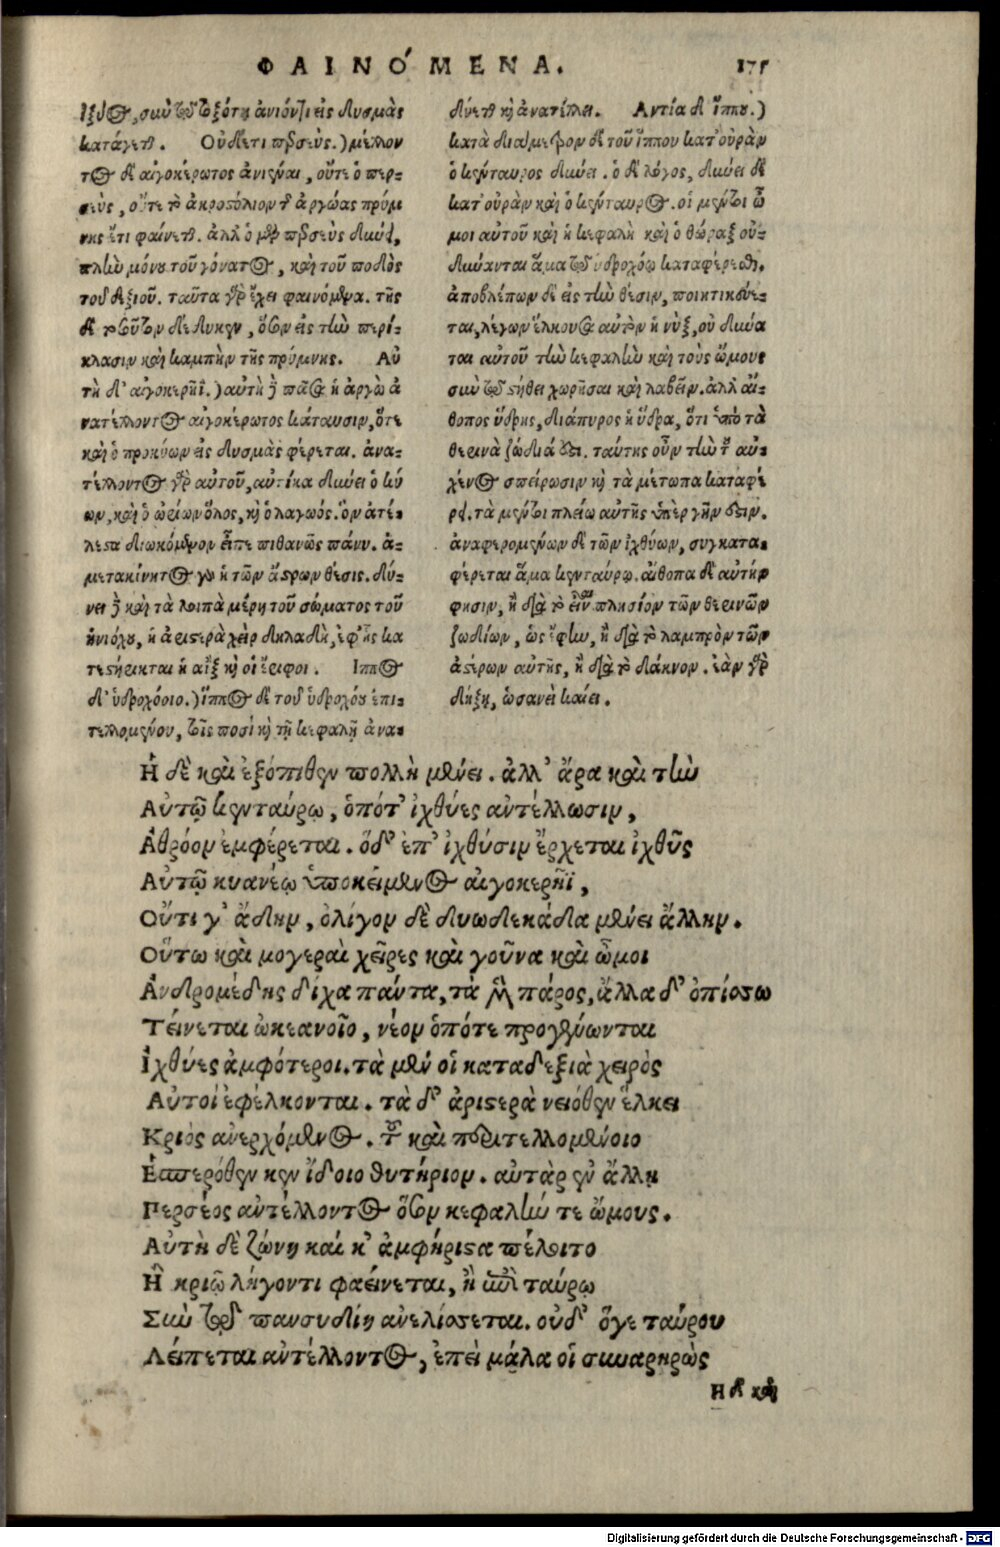 ΦΑΙΝΌΜΕΝΑ. 175
ἰξύος, σὺν τῷ τοξότῃ ἀνιόντι εἰς δυσμὰς
κατάγεται. Οὐδ' ἔτι περσεύς.) μέλλον
τος δὲ αἰγοκέρωτος ἀνιέναι, οὔτε ὁ περ-
σεὺς, οὔτε τὸ ἀκροστόλιον τῆς ἀργώας πρύμ
νης ἔτι φαίνεται. ἀλλ' ὁ μὲν περσεὺς δύνει,
πλὴν μόνου τοῦ γόνατος, καὶ τοῦ ποδὸς
τοῦ δεξιοῦ. ταῦτα γὰρ ἔχει φαινόμενα. τῆς
δὲ τοσοῦτον δέδυκεν, ὅσον εἰς τὴν περί-
κλασιν καὶ καμπὴν τῆς πρύμνης. Αὐ
τὴ δ' αἰγοκερῆϊ.) αὐτὴ δὲ πᾶσα ἡ ἀργὼ ἀ
νατέλλοντος αἰγοκέρωτος κάταυσιν, ὅτε
καὶ ὁ προκύων εἰς δυσμὰς φέρεται. ἀνα-
τέλλοντος γὰρ αὐτοῦ, αὐτίκα δύνει ὁ κύ
ων, καὶ ὁ ὠρίων ὅλος, καὶ ὁ λαγωός. ὃν ἀτέ-
λεστα διωκόμενον εἶπε πιθανῶς πάνυ. ἀ-
μετακίνητος γὰρ ἡ τῶν ἄστρων θέσις. δύ-
νει δὲ καὶ τὰ λοιπὰ μέρη τοῦ σώματος τοῦ
ἡνιόχου, ἡ ἀριστερὰ χεὶρ δηλαδὴ, ἐφ' ἧς κα
τεστήρικται ἡ αἲξ καὶ οἱ ἔριφοι. Ἵππος
δ' ὑδροχόοιο.) ἵππος δὲ τοῦ ὑδροχόου ἐπι-
τελλομένου, τοῖς ποσὶ καὶ τῇ κεφαλῇ ἀνα-
δύεται καὶ ἀνατέλλει. Ἀντία δ' ἵππου.)
κατὰ διάμετρον δὲ τοῦ ἵππου κατ' οὐρὰν
ὁ κένταυρος δύνει. ὁ δὲ λόγος, δύνει δὲ
κατ' οὐρὰν καὶ ὁ κένταυρος. οἱ μέντοι ὦ
μοι αὐτοῦ καὶ ἡ κεφαλὴ καὶ ὁ θώραξ οὐ-
δύνανται ἅμα τῷ ὑδροχόῳ καταφέρεσθαι.
ἀποβλέπων δὲ εἰς τὴν θέσιν, ποιητικεύε-
ται, λέγων ἕλκουσα αὐτὸν ἡ νὺξ, οὐ δύνα
ται αὐτοῦ τὴν κεφαλὴν καὶ τοὺς ὤμους
σὺν τῷ στήθει χωρῆσαι καὶ λαβεῖν. ἀλλ' αἴ-
θοπος ὕδρης, διάπυρος ἡ ὕδρα, ὅτι ὑπὸ τὰ
θερινὰ ζώδιά ἐστι. ταύτης οὖν τὴν τοῦ αὐ-
χένος σπείρωσιν καὶ τὰ μέτωπα καταφέ
ρει. τὰ μέντοι πλείω αὐτῆς ὑπὲρ γῆν ἐστιν.
ἀναφερομένων δὲ τῶν ἰχθύων, συγκατα-
φέρεται ἅμα κενταύρῳ. αἴθοπα δὲ αὐτήν
φησιν, ἢ διὰ τὸ εἶναι πλησίον τῶν θερινῶν
ζωδίων, ὡς ἔφην, ἢ διὰ τὸ λαμπρὸν τῶν
ἀστέρων αὐτῆς, ἢ διὰ τὸ δάκνον. ἐὰν γὰρ
δήξῃ, ὡσανεὶ καίει.
Ἡ δὲ καὶ ἐξόπιθεν πολλὴ μένει. ἀλλ' ἄρα καὶ τὴν
Αὐτῷ κενταύρῳ, ὁπότ' ἰχθύες ἀντέλλωσιν,
Ἀθρόον ἐμφέρεται. ὅδ' ἐπ' ἰχθύσιν ἔρχεται ἰχθῦς
Αὐτῷ κυανέῳ ὑποκείμενος αἰγοκερῆϊ,
Οὔτι γ' ἄδην, ὀλίγον δὲ δυωδεκάδα μένει ἄλλην.
Οὕτω καὶ μογεραὶ χεῖρες καὶ γοῦνα καὶ ὦμοι
Ἀνδρομέδης δίχα πάντα, τὰ μὲν πάρος, ἄλλα δ' ὀπίσσω
Τείνεται ὠκεανοῖο, νέον ὁπότε προγένωνται
Ἰχθύες ἀμφότεροι. τὰ μέν οἱ κατὰ δεξιὰ χειρὸς
Αὐτοὶ ἐφέλκονται. τὰ δ' ἀριστερὰ νειόθεν ἕλκει
Κριὸς ἀνερχόμενος. τοῦ καὶ περιτελλομένοιο
Ἑσπερόθεν κεν ἴδοιο θυτήριον. αὐτὰρ ἐν ἄλλῃ
Περσέος ἀντέλλοντος ὅσον κεφαλήν τε ὤμους.
Αὐτὴ δὲ ζώνη καί κ' ἀμφήριστα πέλοιτο
Ἢ κριῷ λήγοντι φαείνεται, ἢ ἐπὶ ταύρῳ
Σὺν τῷ πανσυδίῃ ἀνελίσσεται. οὐδ' ὅγε ταύρου
Λείπεται ἀντέλλοντος, ἐπεὶ μάλα οἱ συναρηρὼς
Ἡ δὲ καὶ
Digitalisierung gefördert durch die Deutsche Forschungsgemeinschaft - DFG